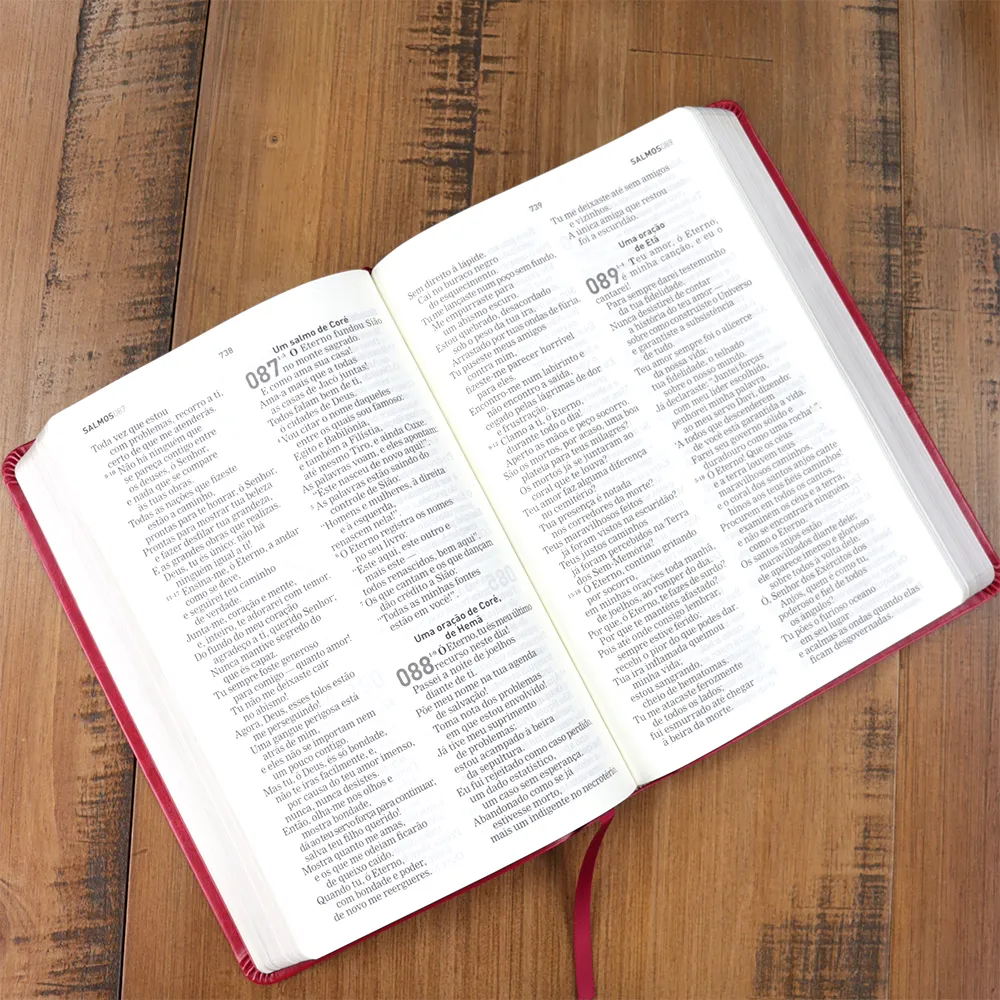 738
SALMOS087
Toda vez que estou
com problemas, recorro a ti,
certo de que me atenderás.
8-10 Não há ninguém que
se pareça contigo entre
os deuses, ó Senhor,
e nada que se compare
às tuas obras.
Todas as nações que fizeste
estão a caminho,
prontas para te honrar, ó Senhor,
Prontas para mostrar tua beleza
e fazer desfilar tua grandeza,
E as grandes obras que realizas.
Deus, tu és único, não há
ninguém igual a ti!
11-17 Ensina-me, ó Eterno, a andar
como se deve,
e seguirei teu caminho
de verdade.
Junta-me, coração e mente,
inteiro, te adorarei com temor.
Do fundo do meu coração
agradeço a ti, querido Senhor;
Nunca mantive segredo do
que és capaz.
Tu sempre foste generoso
para comigo — quanto amor!
Tu não me deixaste cair
no abismo!
Agora, Deus, esses tolos estão
me perseguindo!
Uma gangue perigosa está
atrás de mim,
e eles não se importam nem
um pouco contigo.
Mas tu, ó Deus, és só bondade,
não te iras facilmente, e,
por causa do teu amor imenso,
nunca, nunca desistes.
Então, olha-me nos olhos e
mostra bondade,
dá ao teu servo força para continuar,
salva teu filho querido!
Mostra quanto me amas,
e os que me odeiam ficarão
de queixo caído,
Quando tu, ó Eterno,
com bondade e poder,
de novo me reergueres.
Um salmo de Coré
087 1-3 O Eterno fundou Sião
no monte sagrado,
E, como ama sua casa!
Ama-a mais que a todas
as casas de Jacó juntas!
Todos falam bem de ti,
ó cidade de Deus.
4 Vou citar o nome daqueles
entre os quais sou famoso:
Egito e Babilônia,
e também a Filístia,
até mesmo Tiro, e ainda Cuxe.
As palavras voam, e eles apontam:
"Este nasceu de novo aqui!".
5 As palavras estão saindo do
controle de Sião:
"Homens e mulheres, à direita
e à esquerda,
renascem nela!".
6 O Eterno registra os nomes
no seu livro:
"Este aqui, este outro e
mais este —
todos renascidos, bem aqui".
7 Os que cantam e os que dançam
dão crédito a Sião:
"Todas as minhas fontes
estão em você".
Uma oração de Coré,
de Hemã
088 1-9 Ó Eterno, tu és meu último
recurso neste dia!
Passei a noite de joelhos
diante de ti.
Põe meu nome na tua agenda
de salvação!
Toma nota dos problemas
em que estou envolvido!
Já tive meu suprimento
de problemas;
estou acampado à beira
da sepultura.
Eu fui rejeitado como caso perdido
um dado estatístico,
um caso sem esperança.
Abandonado como se já
estivesse morto,
mais um indigente no necrotério
739
SALMOS089
Sem direito à lápide.
Caí no buraco negro
do esquecimento.
Tu me lançaste num poço sem fundo,
Me empurraste para
um abismo escuro.
Estou quebrado, desacordado
sob o peso da tua ira,
Arrastado por tuas ondas de fúria.
Tu puseste meus amigos
contra mim,
fizeste-me parecer horrível
para eles.
Encontro-me num labirinto e
não encontro a saída,
cegado pelas lágrimas de dor
e frustração.
9-12 Clamo a ti, ó Eterno,
durante todo o dia!
Aperto as mãos e peço socorro.
São os mortos, por acaso, uma boa
plateia para teus milagres?
Os mortos já se juntaram ao
coral que te louva?
Teu amor faz alguma diferença
no cemitério?
Tua presença é notada
nos corredores da morte?
Teus maravilhosos feitos
já foram vistos na escuridão?
Teus justos caminhos
já foram percebidos na Terra
dos Sem-Memória?
13-18 Ó Eterno, continuo gritando
por socorro,
em minhas orações toda manhã,
de joelhos, ao romper do dia.
Por que, ó Eterno, te fazes de surdo?
Por que te manténs afastado?
Pois até onde consigo lembrar,
sempre estive ferido,
recebi o pior do que podes dar.
Tua ira inflamada queimou
minha vida;
estou sangrando,
cheio de hematomas.
Tu me atacaste ferozmente
de todos os lados,
fui esmurrado até chegar
à beira da morte.
Tu me deixaste até sem amigos
e vizinhos.
A única amiga que restou
foi a escuridão.
Uma oração
de Etã
089 1-4 Teu amor, ó Eterno,
é minha canção, e eu o
cantarei!
Para sempre darei testemunho
da tua fidelidade.
Nunca desistirei de contar
a história do teu amor —
sobre como construíste o Universo
e garantiste a subsistência
de tudo.
Teu amor sempre foi o alicerce
da nossa vida;
tua fidelidade, o telhado
sobre o nosso mundo.
Já declaraste: "Juntei forças
com meu líder escolhido,
penhorei minha palavra
ao meu servo Davi, dizendo:
'A todos que descenderem
de você está garantida a vida;
Farei seu governo sólido e
duradouro como uma rocha' ".
Ó Eterno! Que os céus
louvem teus caminhos
maravilhosos,
e o coral dos santos anjos cante
hinos aos teus fiéis caminhos!
Procurem em todos os caminhos,
examinem os céus e a terra,
e não se encontrará ninguém
como o Eterno.
Os santos anjos estão
maravilhados diante dele;
ele aparece imenso e glorioso
sobre todos à volta dele.
Ó, Senhor dos Exércitos dos
Anjos, quem é como tu,
poderoso e fiel de todos
os ângulos?
Tu pões o furioso oceano
em seu lugar
e acalmas as ondas quando elas
ficam desgovernadas.